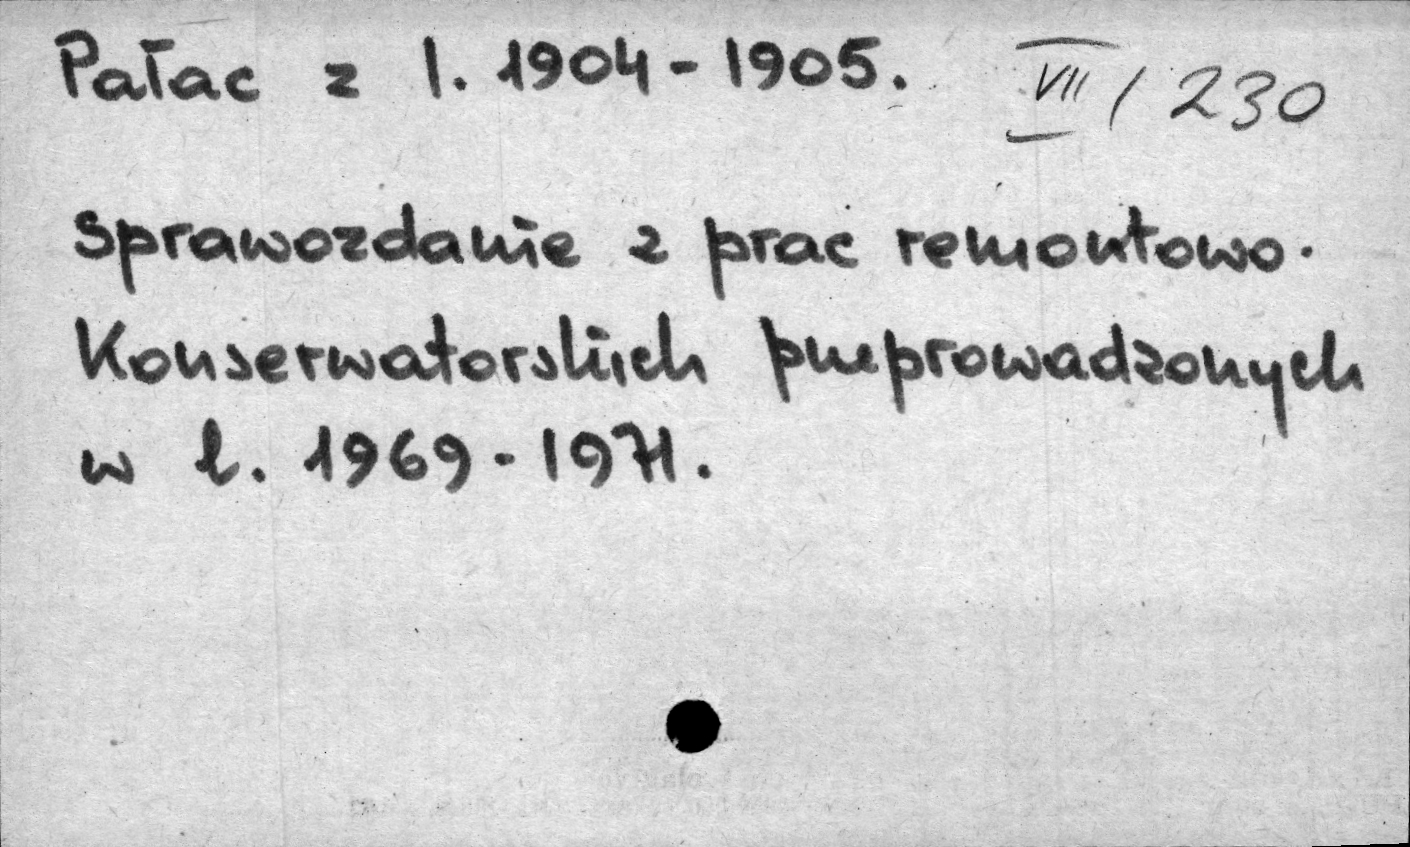 Pałac z l. 1904-1905. VII / 230
Sprawozdanie z prac remontowo-
Konserwatorskich przeprowadzonych
w l. 1969-1971.